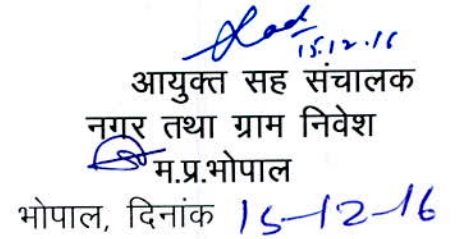 15.12.16
आयुक्त सह संचालक
नगर तथा ग्राम निवेश
म.प्र.भोपाल
भोपाल, दिनांक 15-12-16